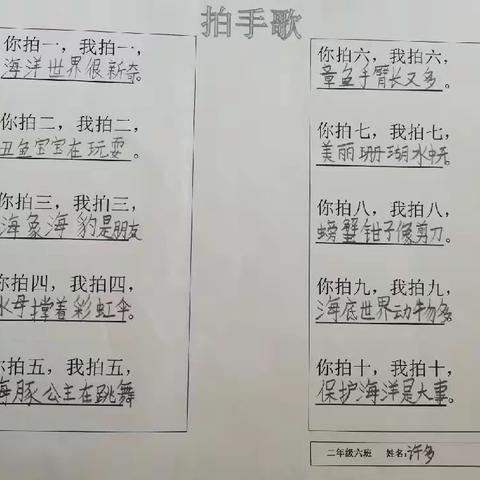 拍手歌
你拍一，我拍一，
海洋世界很新奇。
你拍二，我拍二，
丑鱼宝宝在玩耍
你拍三，我拍三，
海象海豹是朋友
你拍四，我拍四，
水母撑着彩虹伞。
你拍五，我拍五，
海豚公主在跳舞
你拍六，我拍六，
章鱼手臂长又多。
你拍七，我拍七，
美丽珊瑚水中
你拍八，我拍八，
螃蟹钳子像剪刀。
你拍九，我拍九，
海底世界动物多
你拍十，我拍十，
保护海洋是大事。
二年级六班 姓名:许多